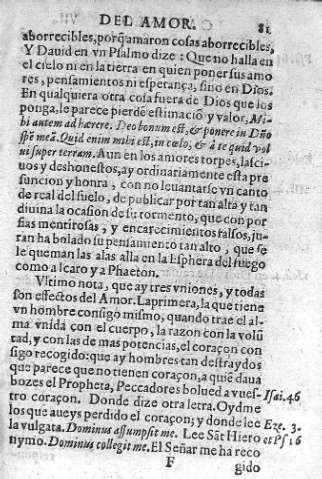 DEL AMOR. 81
aborrecibles, porq̃ amaron cosas aborrecibles,
Y Dauid en vn Psalmo dize: Que no halla en
el cielo ni en la tierra en quien poner sus amo
res, pensamientos ni esperança, sino en Dios.
En qualquiera otra cosa fuera de Dios que los
ponga, le parece pierdẽ estimaciõ y valor, Mi-
bi autem adhærere. Deo bonum est, & ponere in Dño
spẽ meã. Quid enim mihi est, in cœlo, & à te quid vol
ui super terram. Aun en los amores torpes, lasci-
uos y deshonestos, ay ordinariamente esta pre
suncion y honra, con no leuantarse vn canto
de real del suelo, de publicar por tan alta y tan
diuina la ocasion de su tormento, que con por
fias mentirosas, y encarecimientos falsos, ju-
ran ha bolado su pensamiento tan alto, que se
le queman las alas alla en la Esphera del fuego
como a Icaro y a Phaeton.
Vltimo nota, que ay tres vniones, y todas
son effectos del Amor. La primera, la que tiene
vn hombre consigo mismo, quando trae el al-
ma vnida con el cuerpo, la razon con la volũ
tad, y con las de mas potencias, el coraçon con
sigo recogido: que ay hombres tan destraydos
que parece que no tienen coraçon, a quiẽ daua
bozes el Propheta, Peccadores bolued a vues- Isai. 46
tro coraçon. Donde dize otra letra. Oydme
los que aueys perdido el coraçon; y donde lee Eze. 3.
la vulgata. Dominus assumpsit me. Lee Sãt Hiero et Ps 16
nymo. Dominus collegit me. El Señar me ha reco
F gido